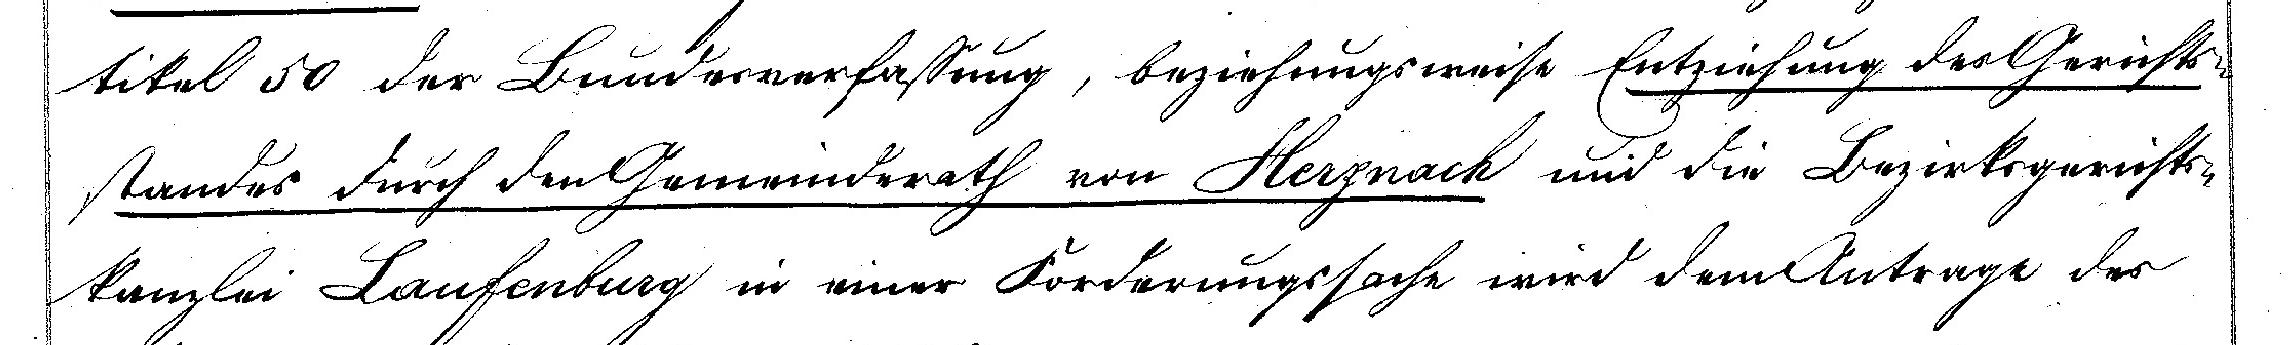 tikel 50 der Bundesverfassung, beziehungsweise Entziehung des Gerichts-
standes durch den Gemeinderath von Herznach und die Bezirksgerichts-
kanzlei Laufenburg in einer Forderungssache wird dem Antrage des